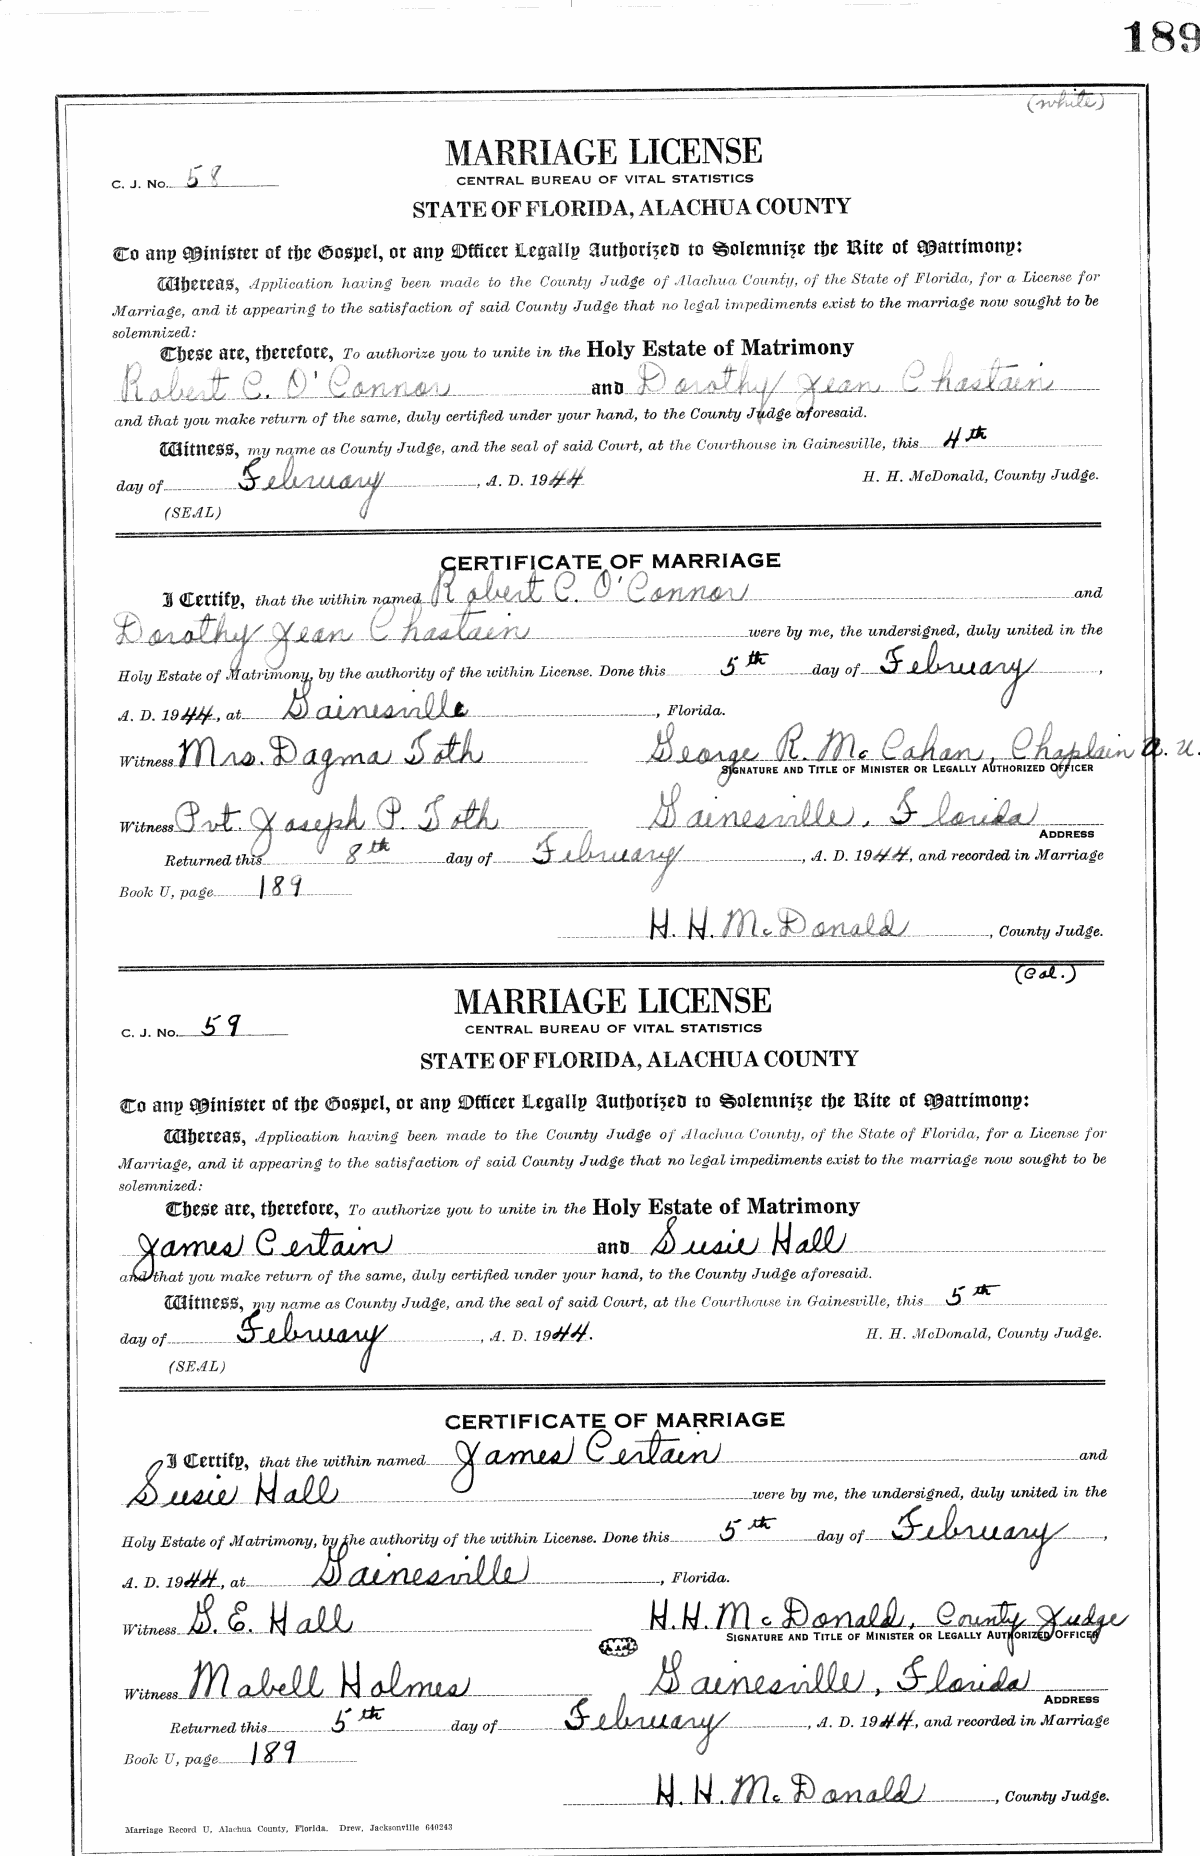 189
(white)
MARRIAGE LICENSE
C. J. No. 58
CENTRAL BUREAU OF VITAL STATISTICS
STATE OF FLORIDA, ALACHUA COUNTY
To any Minister of the Gospel, or any Officer Legally Authorized to Solemnize the Rite of Matrimony:
Whereas, Application having been made to the County Judge of Alachua County, of the State of Florida, for a License for
Marriage, and it appearing to the satisfaction of said County Judge that no legal impediments exist to the marriage now sought to be
solemnized:
These are, therefore, To authorize you to unite in the Holy Estate of Matrimony
Robert C. O'Connor and Dorothy Jean Chastain
and that you make return of the same, duly certified under your hand, to the County Judge aforesaid.
Witness, my name as County Judge, and the seal of said Court, at the Courthouse in Gainesville, this 4th
day of February, A. D. 1944 H. H. McDonald, County Judge.
(SEAL)
CERTIFICATE OF MARRIAGE
I Certify, that the within named Robert C. O'Connor and
Dorothy Jean Chastain were by me, the undersigned, duly united in the
Holy Estate of Matrimony, by the authority of the within License. Done this 5th day of February,
A. D. 1944, at Gainesville, Florida.
Witness Mrs. Dagma Toth George R. McCahan, Chaplain A. U.
SIGNATURE AND TITLE OF MINISTER OR LEGALLY AUTHORIZED OFFICER
Witness Pvt. Joseph P. Toth Gainesville, Florida
ADDRESS
Returned this 8th day of February, A. D. 1944, and recorded in Marriage
Book U, page 189
H. H. McDonald, County Judge.
(Col.)
MARRIAGE LICENSE
C. J. No. 59
CENTRAL BUREAU OF VITAL STATISTICS
STATE OF FLORIDA, ALACHUA COUNTY
To any Minister of the Gospel, or any Officer Legally Authorized to Solemnize the Rite of Matrimony:
Whereas, Application having been made to the County Judge of Alachua County, of the State of Florida, for a License for
Marriage, and it appearing to the satisfaction of said County Judge that no legal impediments exist to the marriage now sought to be
solemnized:
These are, therefore, To authorize you to unite in the Holy Estate of Matrimony
James Certain and Susie Hall
and that you make return of the same, duly certified under your hand, to the County Judge aforesaid.
Witness, my name as County Judge, and the seal of said Court, at the Courthouse in Gainesville, this 5th
day of February, A. D. 1944. H. H. McDonald, County Judge.
(SEAL)
CERTIFICATE OF MARRIAGE
I Certify, that the within named James Certain and
Susie Hall were by me, the undersigned, duly united in the
Holy Estate of Matrimony, by the authority of the within License. Done this 5th day of February,
A. D. 1944, at Gainesville, Florida.
Witness G. E. Hall H. H. McDonald, County Judge
SIGNATURE AND TITLE OF MINISTER OR LEGALLY AUTHORIZED OFFICER
Witness Mabell Holmes Gainesville, Florida
ADDRESS
Returned this 5th day of February, A. D. 1944, and recorded in Marriage
Book U, page 189
H. H. McDonald, County Judge.
Marriage Record U, Alachua County, Florida. Drew, Jacksonville 640243